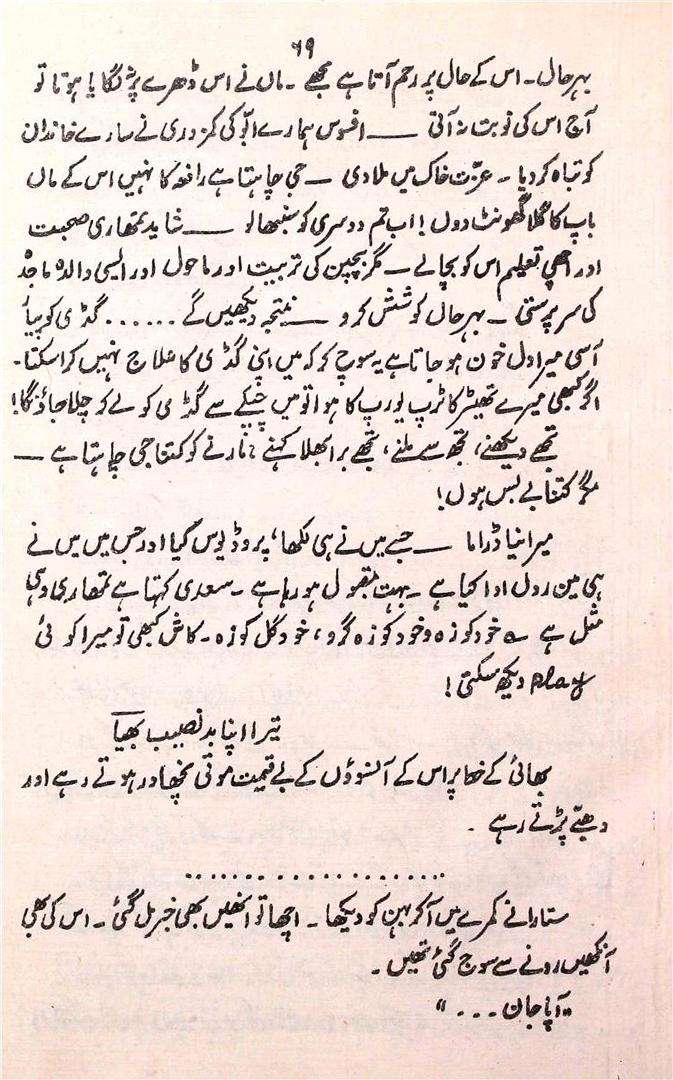 ۶۹
بہرحال۔ اس کے حال پر رحم آتا ہے مجھے ۔ ماں نے اس ڈھرے پر نہ لگایا ہوتا تو
آج اس کی نوبت نہ آتی —— افسوس ہمارے ابّو کی کمزوری نے سارے خاندان
کو تباہ کر دیا ۔ عزّت خاک میں ملا دی — جی چاہتا ہے رافعہ کا نہیں اس کے ماں
باپ کا گلا گھونٹ دوں ! اب تم دوسری کو سنبھالو —— شاید تمھاری صحبت
اور اچھی تعلیم اس کو بچالے — مگر بچپن کی تربیت اور ماحول اور ایسی والدہ ماجدہ
کی سرپرستی ۔ بہرحال کوشش کرو —— نتیجہ دیکھیں گے ...... گڈی کو پیار
آسی میرا دل خون ہو جاتا ہے یہ سوچ کر کہ میں اپنی گڈی کا علاج نہیں کراسکتا۔
اگر کبھی میرے تھیٹر کا ٹرپ یورپ کا ہوا تو میں چپکے سے گڈی کو لے کر چلا جاؤنگا!
تجھے دیکھنے، تجھ سے ملنے، تجھے برا بھلا کہنے، مارنے کو کتنا جی چاہتا ہے —
مگر کتنا بے بس ہوں!
میرا نیا ڈراما —— جسے میں نے ہی لکھا، پروڈیوس کیا اور جس میں میں نے
ہی مین رول ادا کیا ہے ۔ بہت مقبول ہو رہا ہے ۔ سعدی کہتا ہے تمھاری وہی
مثل ہے ؎ خود کوزہ و خود کوزہ گرو، خود گل کوزہ ۔ کاش کبھی تو میرا کوئی
play دیکھ سکتی !
تیرا اپنا بدنصیب بھیّا
بھائی کے خط پر اس کے آنسوؤں کے بے قیمت موتی نچھاور ہوتے رہے اور
دھبّے پڑتے رہے ۔
....................
ستارا نے کمرے میں آکر بہن کو دیکھا ۔ اچھا تو انھیں بھی خبر مل گئی ۔ اس کی بھی
آنکھیں رونے سے سوج گئی تھیں ۔
"آپا جان ..."